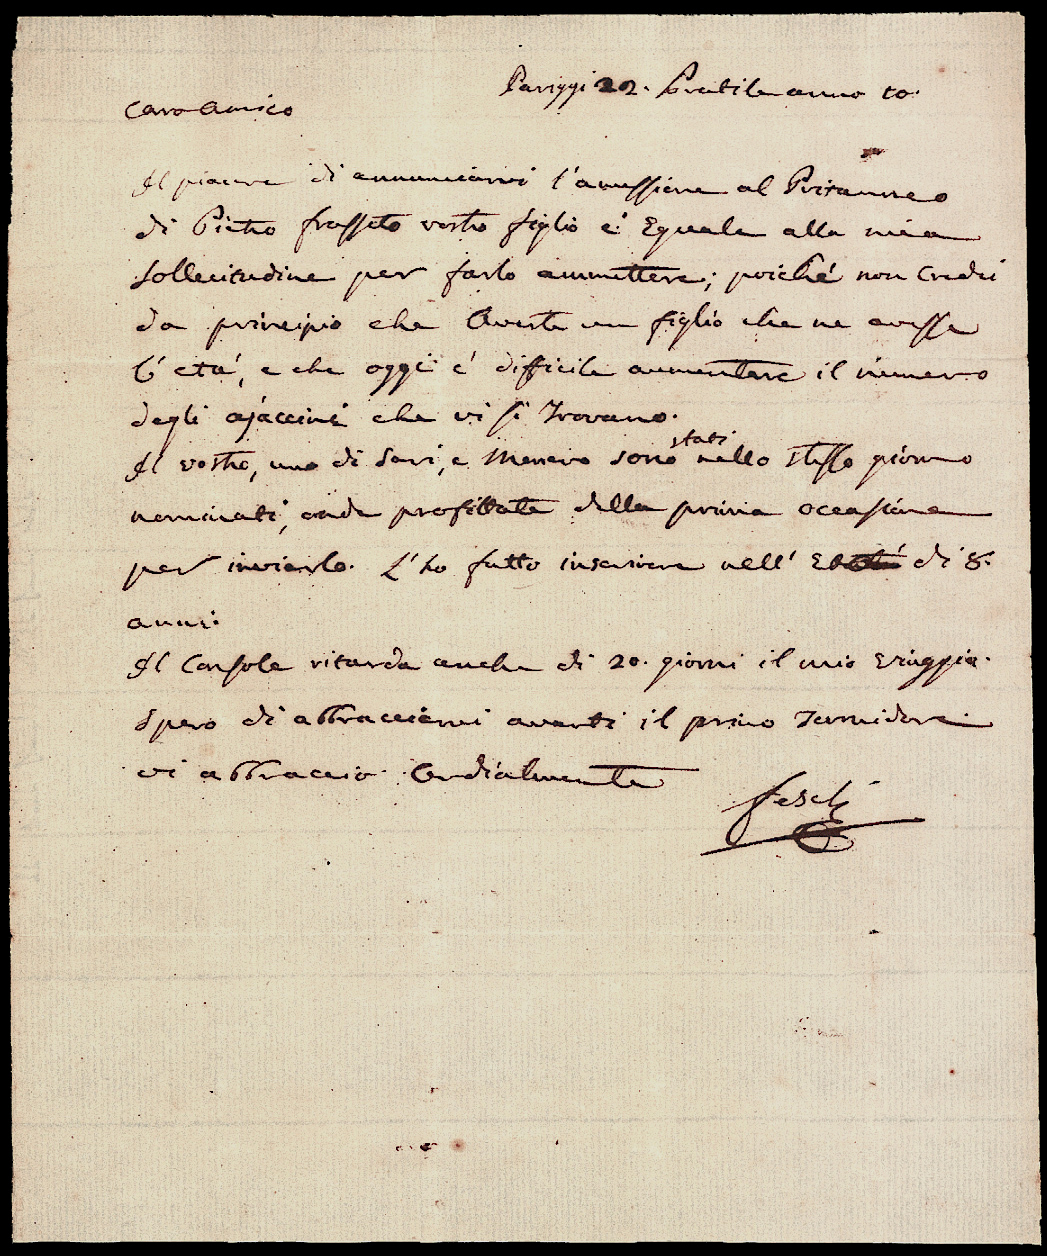 Pariggi 22. Pratile anno 10.
Caro Amico
Il piacere di annunciarvi l'amissione al Pritanneo
di Pietro frasseto vostro figlio é Equale alla mia
sollecitudine per farlo ammettere; poiché non credei
da principio che Aveste un figlio che ne avesse
l'etá, e che oggi é difficile aumentare il numero
degli ajaccini che vi si trovano.
Il vostro, uno di Sari, e sono stati nello stesso giorno
nominati, onde profittate della prima occasione
per inviarlo. L'ho fatto inscrivere nell' di 8.
anni.
Il Console ritarda anche di 20. giorni il mio viaggio.
Spero di abbracciarvi avanti il primo Termidore.
vi abbraccio Cordialmente
Fesch